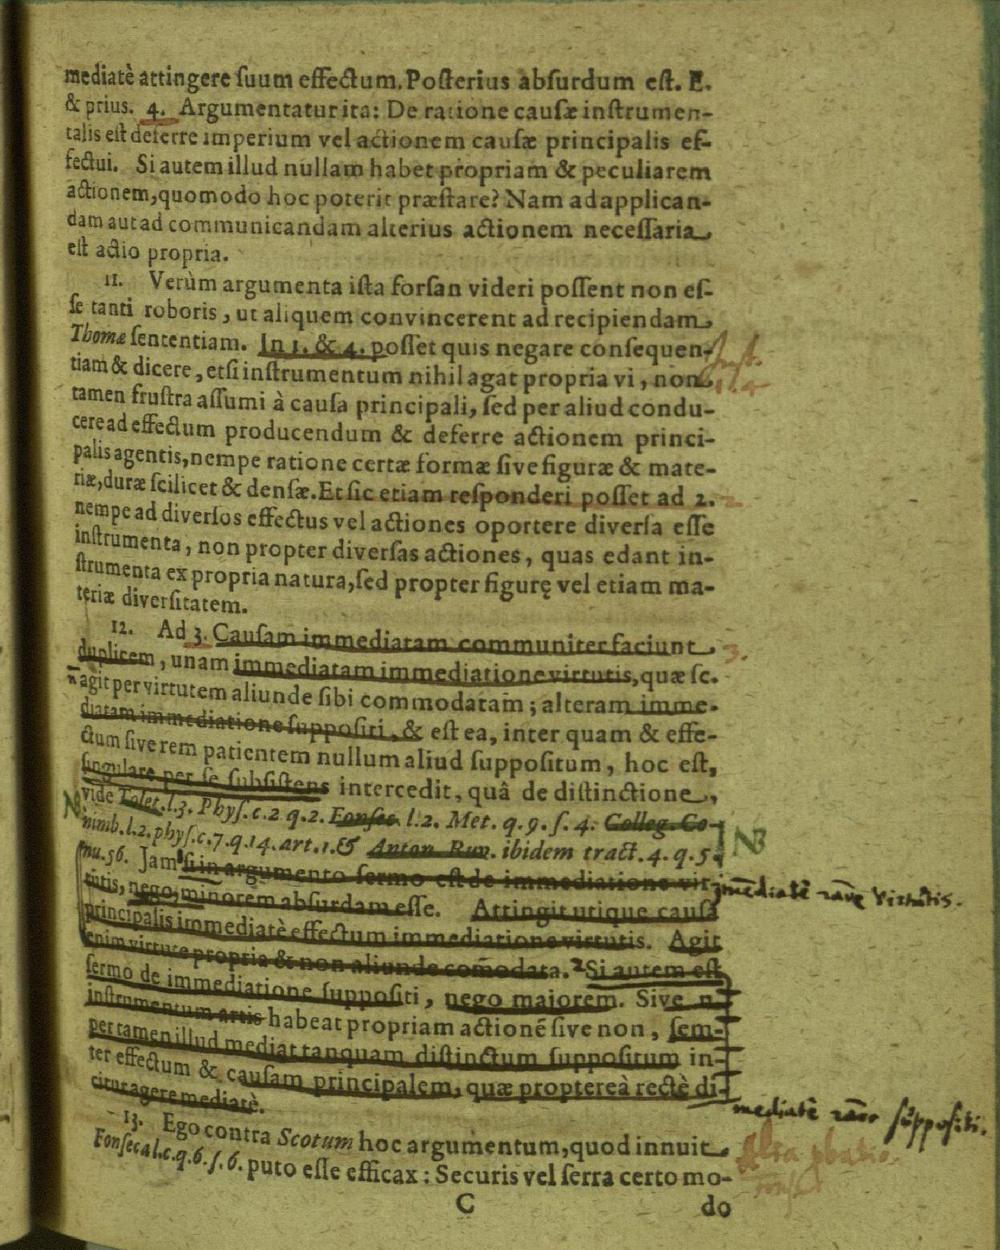 mediatè attingere ſuum effectum. Poſterius abſurdum eſt. E.
& prius. 4. Argumentatur ita: De ratione cauſæ inſtrumen-
talis eſt deferre imperium vel actionem cauſæ principalis ef-
fectui. Si autem illud nullam habet propriam & peculiarem
actionem, quomodo hoc poterit præſtare? Nam ad applican-
dam aut ad communicandam alterius actionem neceſſaria
eſt actio propria.
11. Verùm argumenta iſta forſan videri poſſent non eſ-
ſe tanti roboris, ut aliquem convincerent ad recipiendam
Thomæ ſententiam. In 1. & 4. poſſet quis negare conſequen-
tiam & dicere, etſi inſtrumentum nihil agat propria vi, non
1. 4
tamen fruſtra aſſumi à cauſa principali, ſed per aliud condu-
cere ad effectum producendum & deferre actionem princi-
palis agentis, nempe ratione certæ formæ ſive figuræ & mate-
riæ, duræ ſcilicet & denſæ. Et ſic etiam reſponderi poſſet ad 2.
2
nempe ad diverſos effectus vel actiones oportere diverſa eſſe
inſtrumenta, non propter diverſas actiones, quas edant in-
ſtrumenta ex propria natura, ſed propter figurę vel etiam ma-
teriæ diverſitatem.
12. Ad 3. Cauſam immediatam communiter faciunt
3.
duplicem, unam immediatam immediatione virtutis, quæ ſc.
agit per virtutem aliunde ſibi commodatam; alteram imme-
diatam immediatione ſuppoſiti, & eſt ea, inter quam & effe-
ctum ſive rem patientem nullum aliud ſuppoſitum, hoc eſt,
ſingulare per ſe ſubſiſtens intercedit, quâ de diſtinctione,
vide Tolet. l. 3. Phyſ. c. 2 q. 2. Fonſec. l. 2. Met. q. 9. ſ. 4. Colleg. Co-
nimb. l. 2. phyſ. c. 7. q. 14. art. 1. & Anton. Ruv. ibidem tract. 4. q. 5.
NB
nu. 56. Jam ſi in argumento ſermo eſt de immediatione vir-
mediatè
tutis, nego minorem abſurdam eſſe. Attingit utique cauſa
principalis immediatè effectum immediatione virtutis. Agit
enim virtute propria & non aliunde com̃odata. Si autem eſt
ſermo de immediatione ſuppoſiti, nego majorem. Sive n.
inſtrumentum artis habeat propriam actionē ſive non, ſem-
per tamen illud mediat tanquam diſtinctum ſuppoſitum in-
ter effectum & cauſam principalem, quæ propterea rectè di-
citur agere mediatè.
mediatè
13. Ego contra Scotum hoc argumentum, quod innuit
Fonſeca l. c. q. 6. ſ. 6. puto eſſe efficax: Securis vel ſerra certo mo-
C do